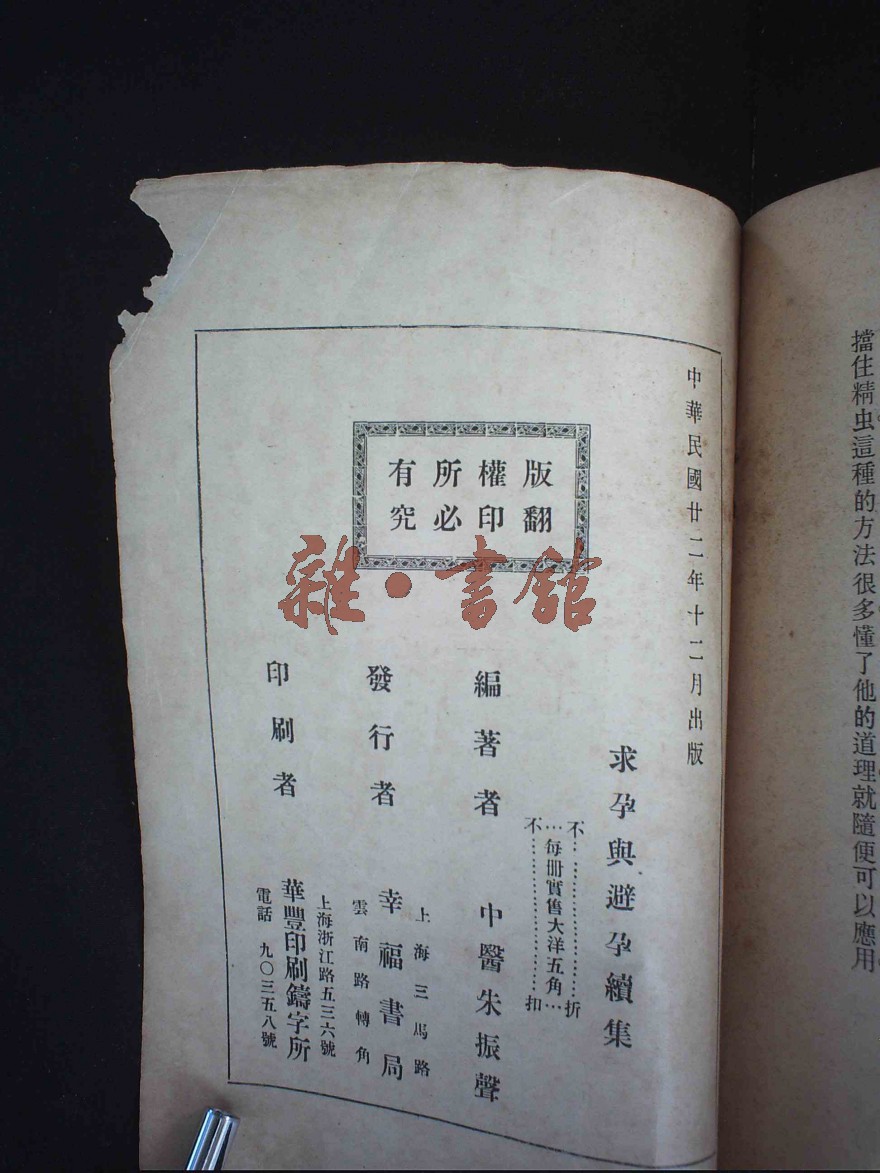 擋住精虫這種的方法很多懂了他的道理就隨便可以應用
中華民國廿二年十二月出版
求孕與避孕續集
不………………折
…每冊實售大洋五角…
不………………扣
版權所有
翻印必究
編著者 中醫朱振聲
發行者 幸福書局
上海三馬路
雲南路轉角
印刷者 華豐印刷鑄字所
上海浙江路五三六號
電話 九〇三五八號
雜·書館